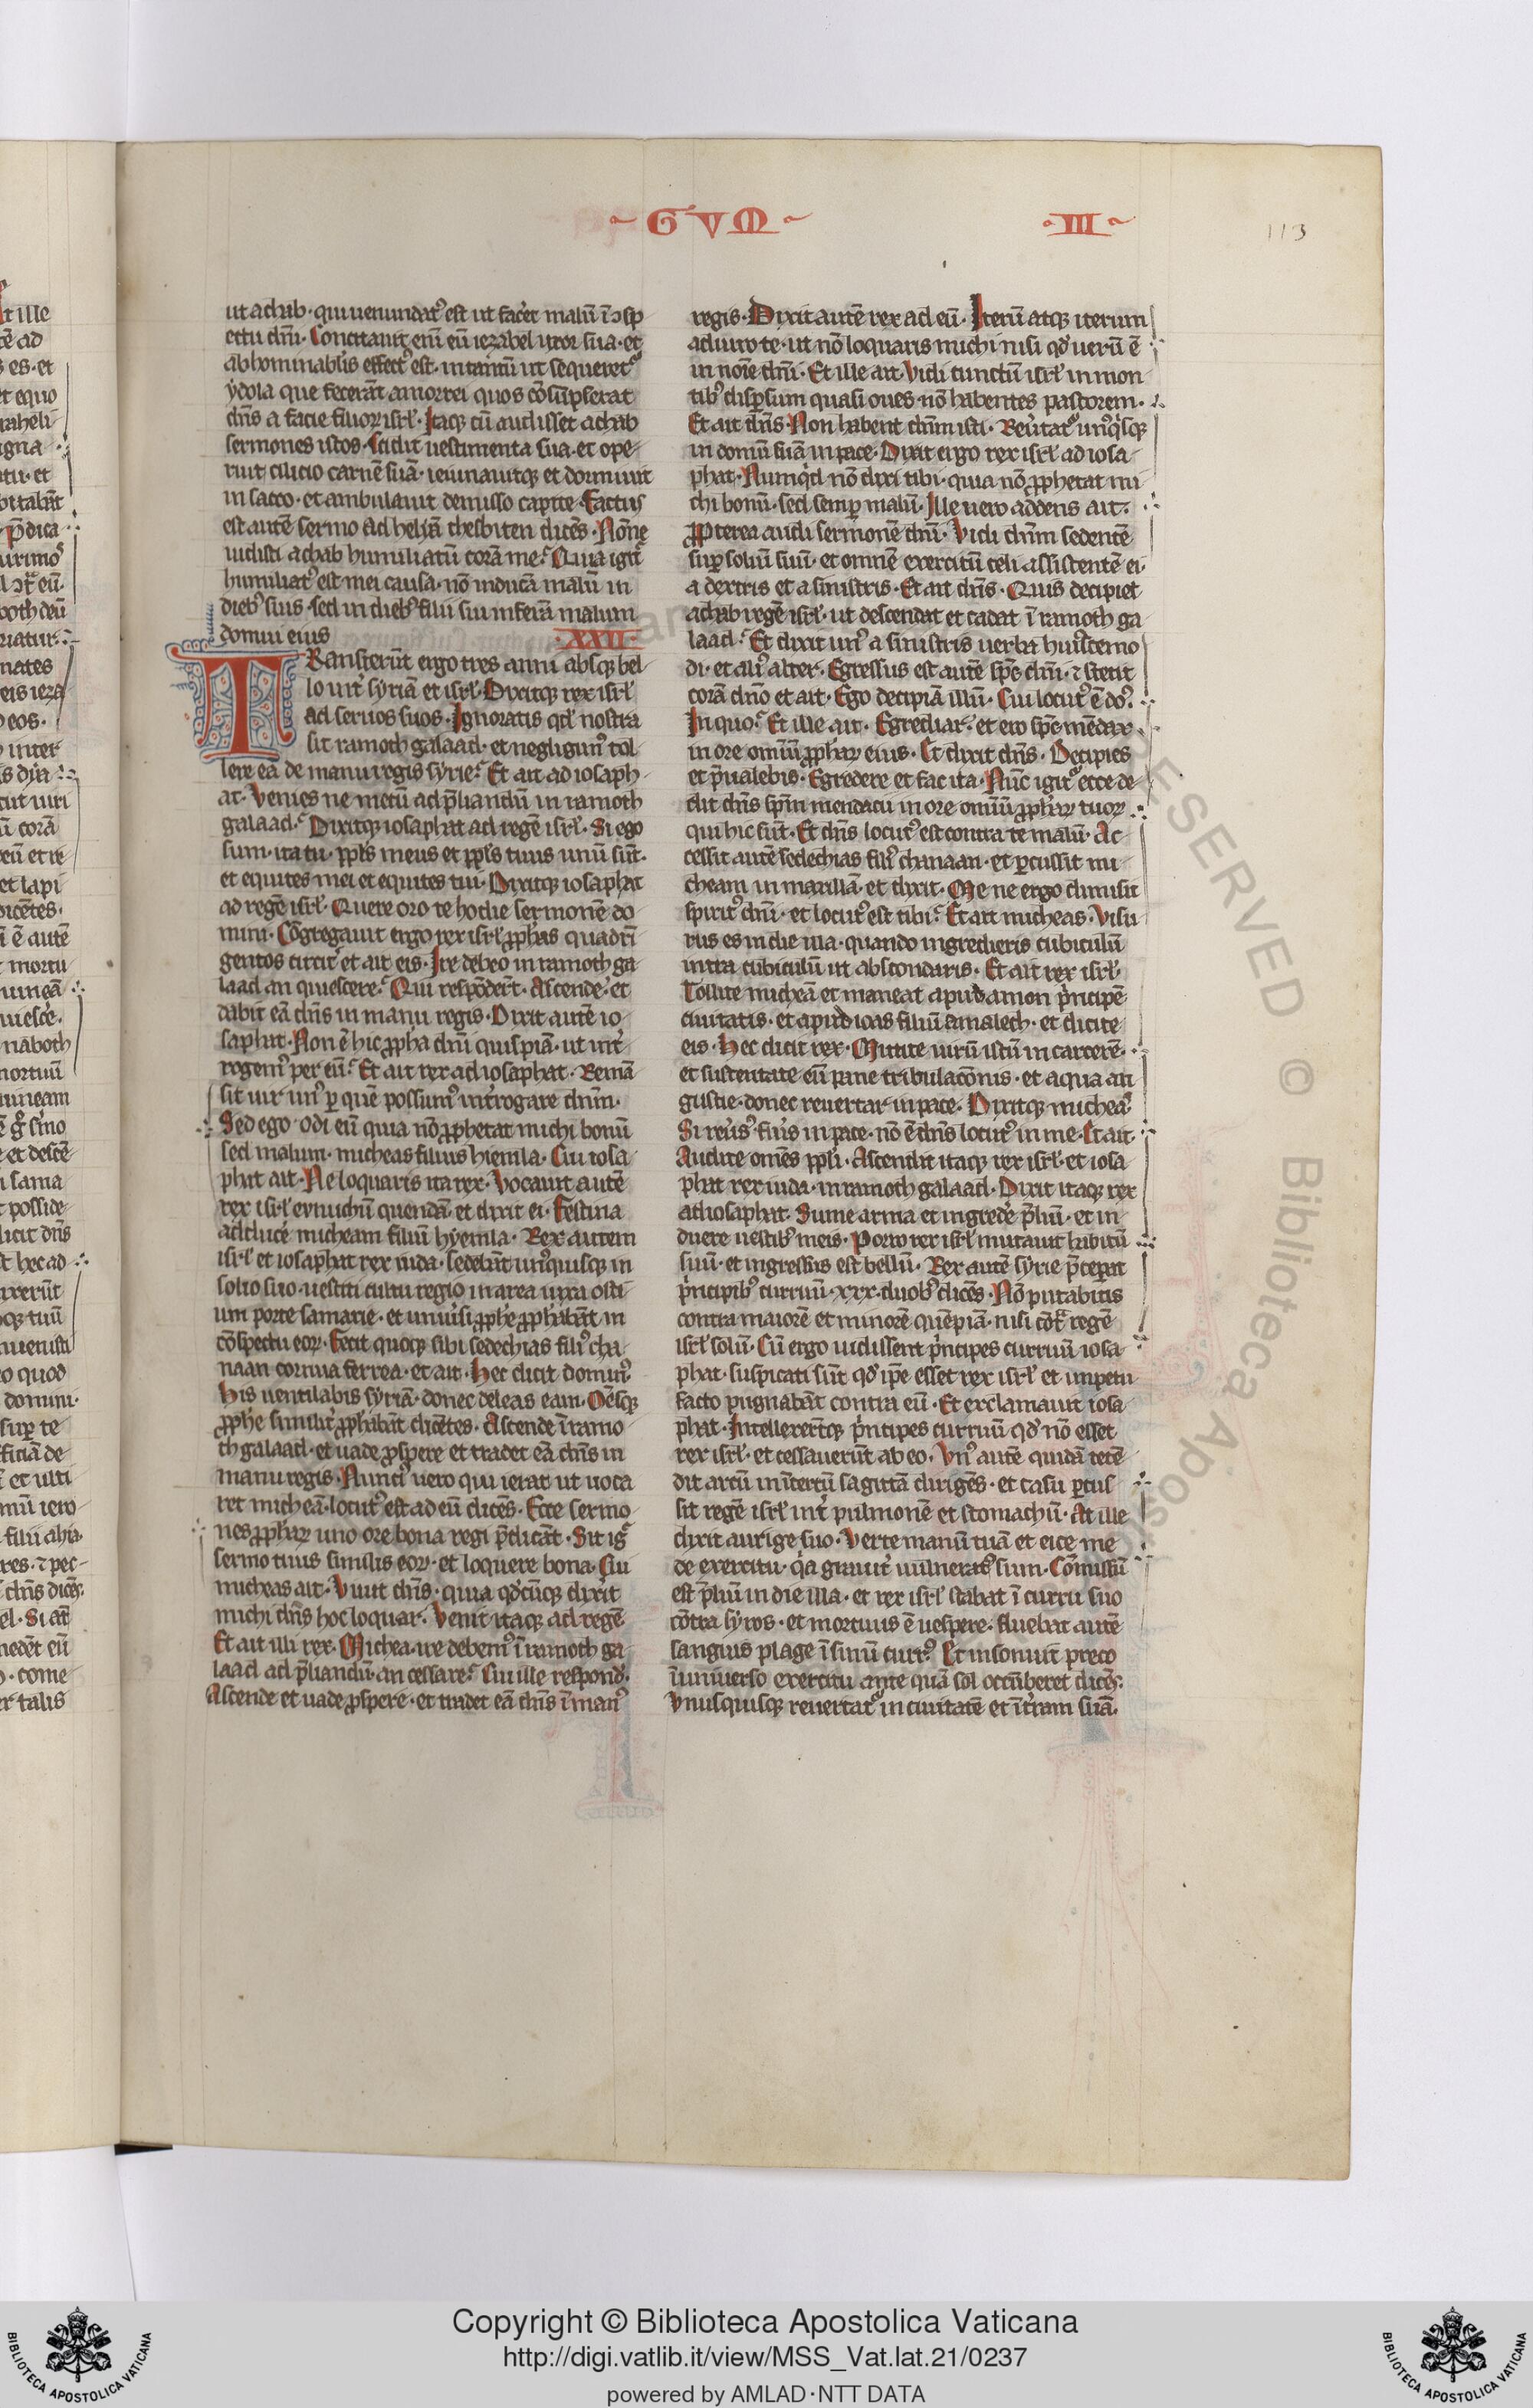 GVM
III
113
ut achab · qui uenundat᾽ est ut fac̓et malū ī ↄsp
ectu dn̄i · Concitauit eni᷒ eū iezabel uxor sua · et
abhominabił̓s effect᾽ est · intantū ut sequeret᾽
ydola que fecerāt amorrei quos cōsūpserat
dn̄s a facie filioꝝ isrł · Itaqꝫ cū audisset achab
sermones istos · Scidit uestimenta sua · et ope
ruit cilicio carnē suā · ieiunauitqꝫ et dormiuit
in sacco · et ambulauit demisso capite · Factus
est autē sermo ad heliā thesbiten dicēs · Nōne
uidisti achab humiliatū corā me · Quia igit᾽
humiliat᾽ est mei causa · nō inducā malū in
dieb᾽ suis · sed in dieb᾽ filii sui inferā malum
domui eius
XXII
TRansierūt ergo tres anni absqꝫ bel
lo int᾽ syriā et isrł · Dixitqꝫ rex isrł
ad seruos suos · Ignoratis qd̓ nostra
sit ramoth galaad · et negligim᾽ tol
lere eā de manu regis syrie · Et ait ad iosaph
at · Venies ne mecū ad p̄liandū in ramoth
galaad · Dixitqꝫ iosaphat ad regē isrł · Si ego
sum · ita tu · ppł̓s meus et ppł̓s tuus unū sūt ·
et equites mei et equites tui · Dixitqꝫ iosaphat
ad regē isrł · Quere oro te hodie sermonē do
mini · Cōgregauit ergo rex isrł ꝓphas quadrī
gentos circit᾽ et ait eis · Ire debeo in ramoth ga
laad an quiescere · Qui respōder̄t · Ascende · et
dabit eā dn̄s in manu regis · Dixit autē io
saphat · Non ē hic ꝓpha dn̄i quispiā · ut int᾽
rogem᾽ per eū · Et ait rex ad iosaphat · Remā
sit uir un᾽ ꝑ quē possum᾽ int᾽rogare dn̄m ·
Sed ego odi eū quia nō ꝓphetat michi bonū
sed malum · micheas filius hiemla · Cui iosa
phat ait · Ne loquaris ita rex · Vocauit autē
rex isrł eunuchū quendā · et dixit ei · Festina
adduc̓e micheam filiū hyemla · Rex autem
isrł et iosaphat rex iuda · sedebāt un᾽quisqꝫ in
solio suo · uestiti cultu regio in area iuxta osti
um porte samarie · et uniu᾽si ꝓphe ꝓphabāt in
cōspectu eoꝝ · Fecit quoqꝫ sibi sedechias fili᾽ cha
naan cornua ferrea · et ait · Hec dicit domin᾽
His uentilabis syriā · donec deleas eam · Om̄esqꝫ
ꝓphe similit᾽ ꝓphabāt dicētes · Ascende ī ramo
th galaad · et uade ꝓspere et tradet eā dn̄s in
manu regis · Nunci᾽ uero qui ierat ut uoca
ret micheā · locut᾽ est ad eū dicēs · Ecce sermo
nes ꝓphaꝝ uno ore bona regi p̄dicāt · Sit ig᾽
sermo tuus similis eoꝝ · et loquere bona · Cui
micheas ait · Viuit dn̄s · quia qd̓cūqꝫ dix̓it
michi dn̄s hoc loquar · Venit itaqꝫ ad regē
Et ait illi rex · Michea · ire debem᾽ ī ramoth ga
laad ad p̄liandū · an cessare · Cui ille respond̓ ·
Ascende et uade ꝓspere · et tradet eā dn̄s ī man᾽
regis · Dixit autē rex ad eū · Iterū atqꝫ iterum
adiuro te · ut nō loquaris michi nisi qd̓ uerū ē
in noīe dn̄i · Et ille ait · Vidi cunctū isrł in mon
tib᾽ disꝑsum quasi oues nō habentes pastorem ·
Et ait dn̄s · Non habent dn̄m isti · Reu᾽tat᾽ unꝰq̓sqꝫ
in domū suā in pace · Dixit ergo rex isrł ad iosa
phat · Numq̓d nō dixi tibi · quia nō ꝓphetat mi
chi bonū · sed semꝑ malū · Ille uero addens ait ·
Ꝓpterea audi sermonē dn̄i · Vidi dn̄m sedentē
suꝑ soliū suū · et omnē exercitū celi assistentē ei ·
a dextris et a sinistris · Et ait dn̄s · Quis decipiet
achab regē isrł · ut descendat et cadat ī ramoth ga
laad · Et dixit un᾽ a sinistris uerba hui᾽scemo
di · et ali᾽ aliter · Egressus est autē spc̄ dn̄i · ⁊ stetit
corā dn̄o et ait · Ego decipiā illū · Cui locut᾽ ē do᾽ ·
In quo · Et ille ait · Egrediar · et ero spc̄ mēdax
in ore omīū ꝓphaꝝ eius · Et dixit dn̄s · Decipies
et p̄ualebis · Egredere et fac ita · Nūc igit᾽ ecce de
dit dn̄s spm̄ mendacii in ore omīū ꝓphaꝝ tuoꝝ
qui hic sūt · Et dn̄s locut᾽ est contra te malū · Ac
cessit autē sedechias fili᾽ chanaan · et ꝑcussit mi
cheam in maxillā · et dixit · Me ne ergo dimisit
spirit᾽ dn̄i · et locut᾽ est tibi · Et ait micheas · Visu
rus es in die illa · quando ingredieris cubiculū
intra cubiculū ut abscondaris · Et ait rex isrł ·
Tollite micheā et maneat apud amon p̓ncipē
ciuitatis · et apud ioas filiū amalech · et dicite
eis · Hec dicit rex · Mittite uirū istū in carcerē ·
et sustentate eū pane tribulacōnis · et aqua an
gustie · donec reuertar in pace · Dixitqꝫ michea᾽
Si reu᾽s᾽ fu̓is in pace · nō ē dn̄s locut᾽ in me · Et ait
Audite om̄es ppł̓i · Ascendit itaqꝫ rex isrł · et iosa
phat rex iuda · in ramoth galaad · Dixit itaqꝫ rex
ad iosaphat · Sume arma et ingred̓e p̄liū · et in
duere uestib᾽ meis · Porro rex isrł mutauit habitū
suū · et ingressus est bellū · Rex autē syrie p̄cep̓at
p̓ncipib᾽ curruū · xxx · duob᾽ dicēs · Nō pugnabitis
contra maiorē et minorē quēpiā · nisi cōtᷓ regē
isrł solū · Cū ergo uidissent p̓ncipes curruū iosa
phat · suspicati sūt qd̓ ip̄e esset rex isrł · et impetu
facto pugnabāt contra eū · Et exclamauit iosa
phat · Intellexer̄tqꝫ p̓ncipes curruū qd̓ nō esset
rex isrł · et cessauerūt ab eo · Vn᾽ autē quidā tetē
dit arcū in īcertū sagittā dirigēs · et casu ꝑcus
sit regē isrł int᾽ pulmonē et stomachū · At ille
dixit aurige suo · Verte manū tuā et eice me
de exercitu · q̓a grauit᾽ uulnerat᾽ sum · Cōmissū
est p̄liū in die illa · et rex isrł stabat ī curru suo
cōtra syros · et mortuus ē uespere · fluebat autē
sanguis plage ī sinū curr᾽ · Et insonuit preco
ī uniuerso exercitu ante quā sol occūberet dicēs ·
Vnusquisqꝫ reuertat᾽ in ciuitatē et ī t᾽ram suā ·
RESERVED © Biblioteca Apostolica
Copyright © Biblioteca Apostolica Vaticana
http://digi.vatlib.it/view/MSS_Vat.lat.21/0237
powered by AMLAD·NTT DATA
BIBLIOTECA APOSTOLICA VATICANA
BIBLIOTECA APOSTOLICA VATICANA